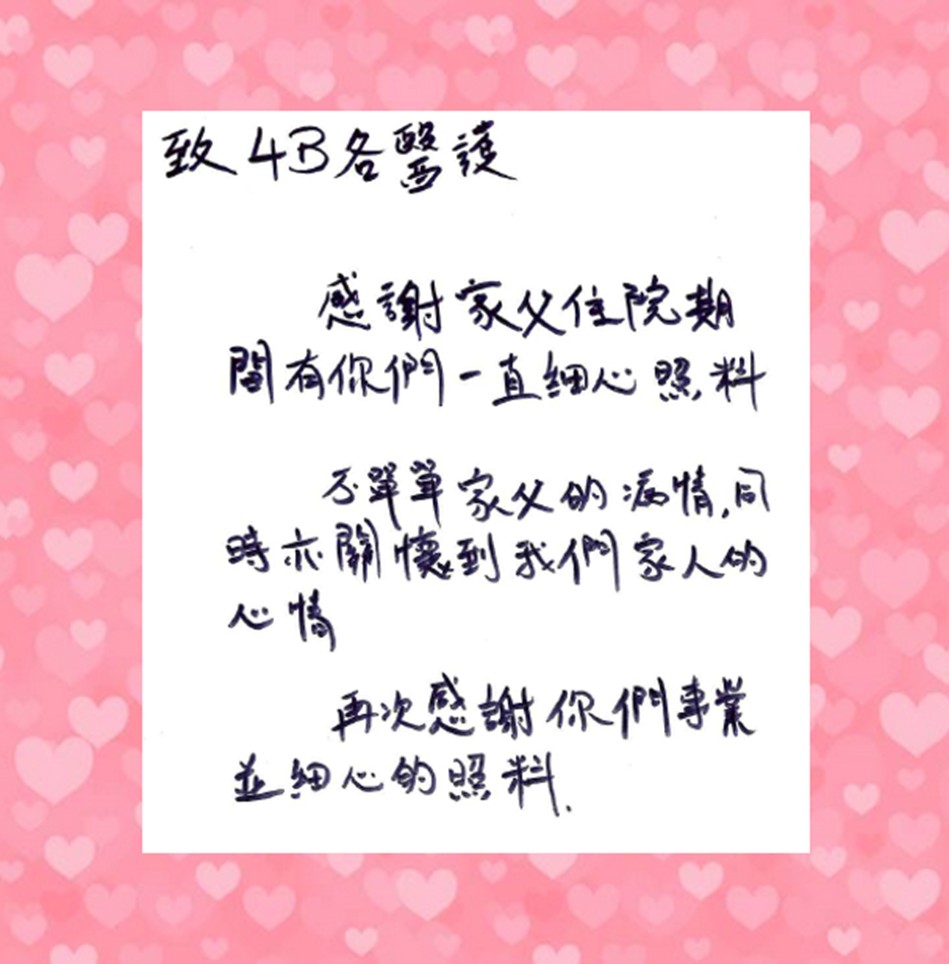 致4B各醫護
感謝家父住院期
間有你們一直細心照料
不單單家父的病情,同
時亦關懷到我們家人的
心情
再次感謝你們事業
並細心的照料.